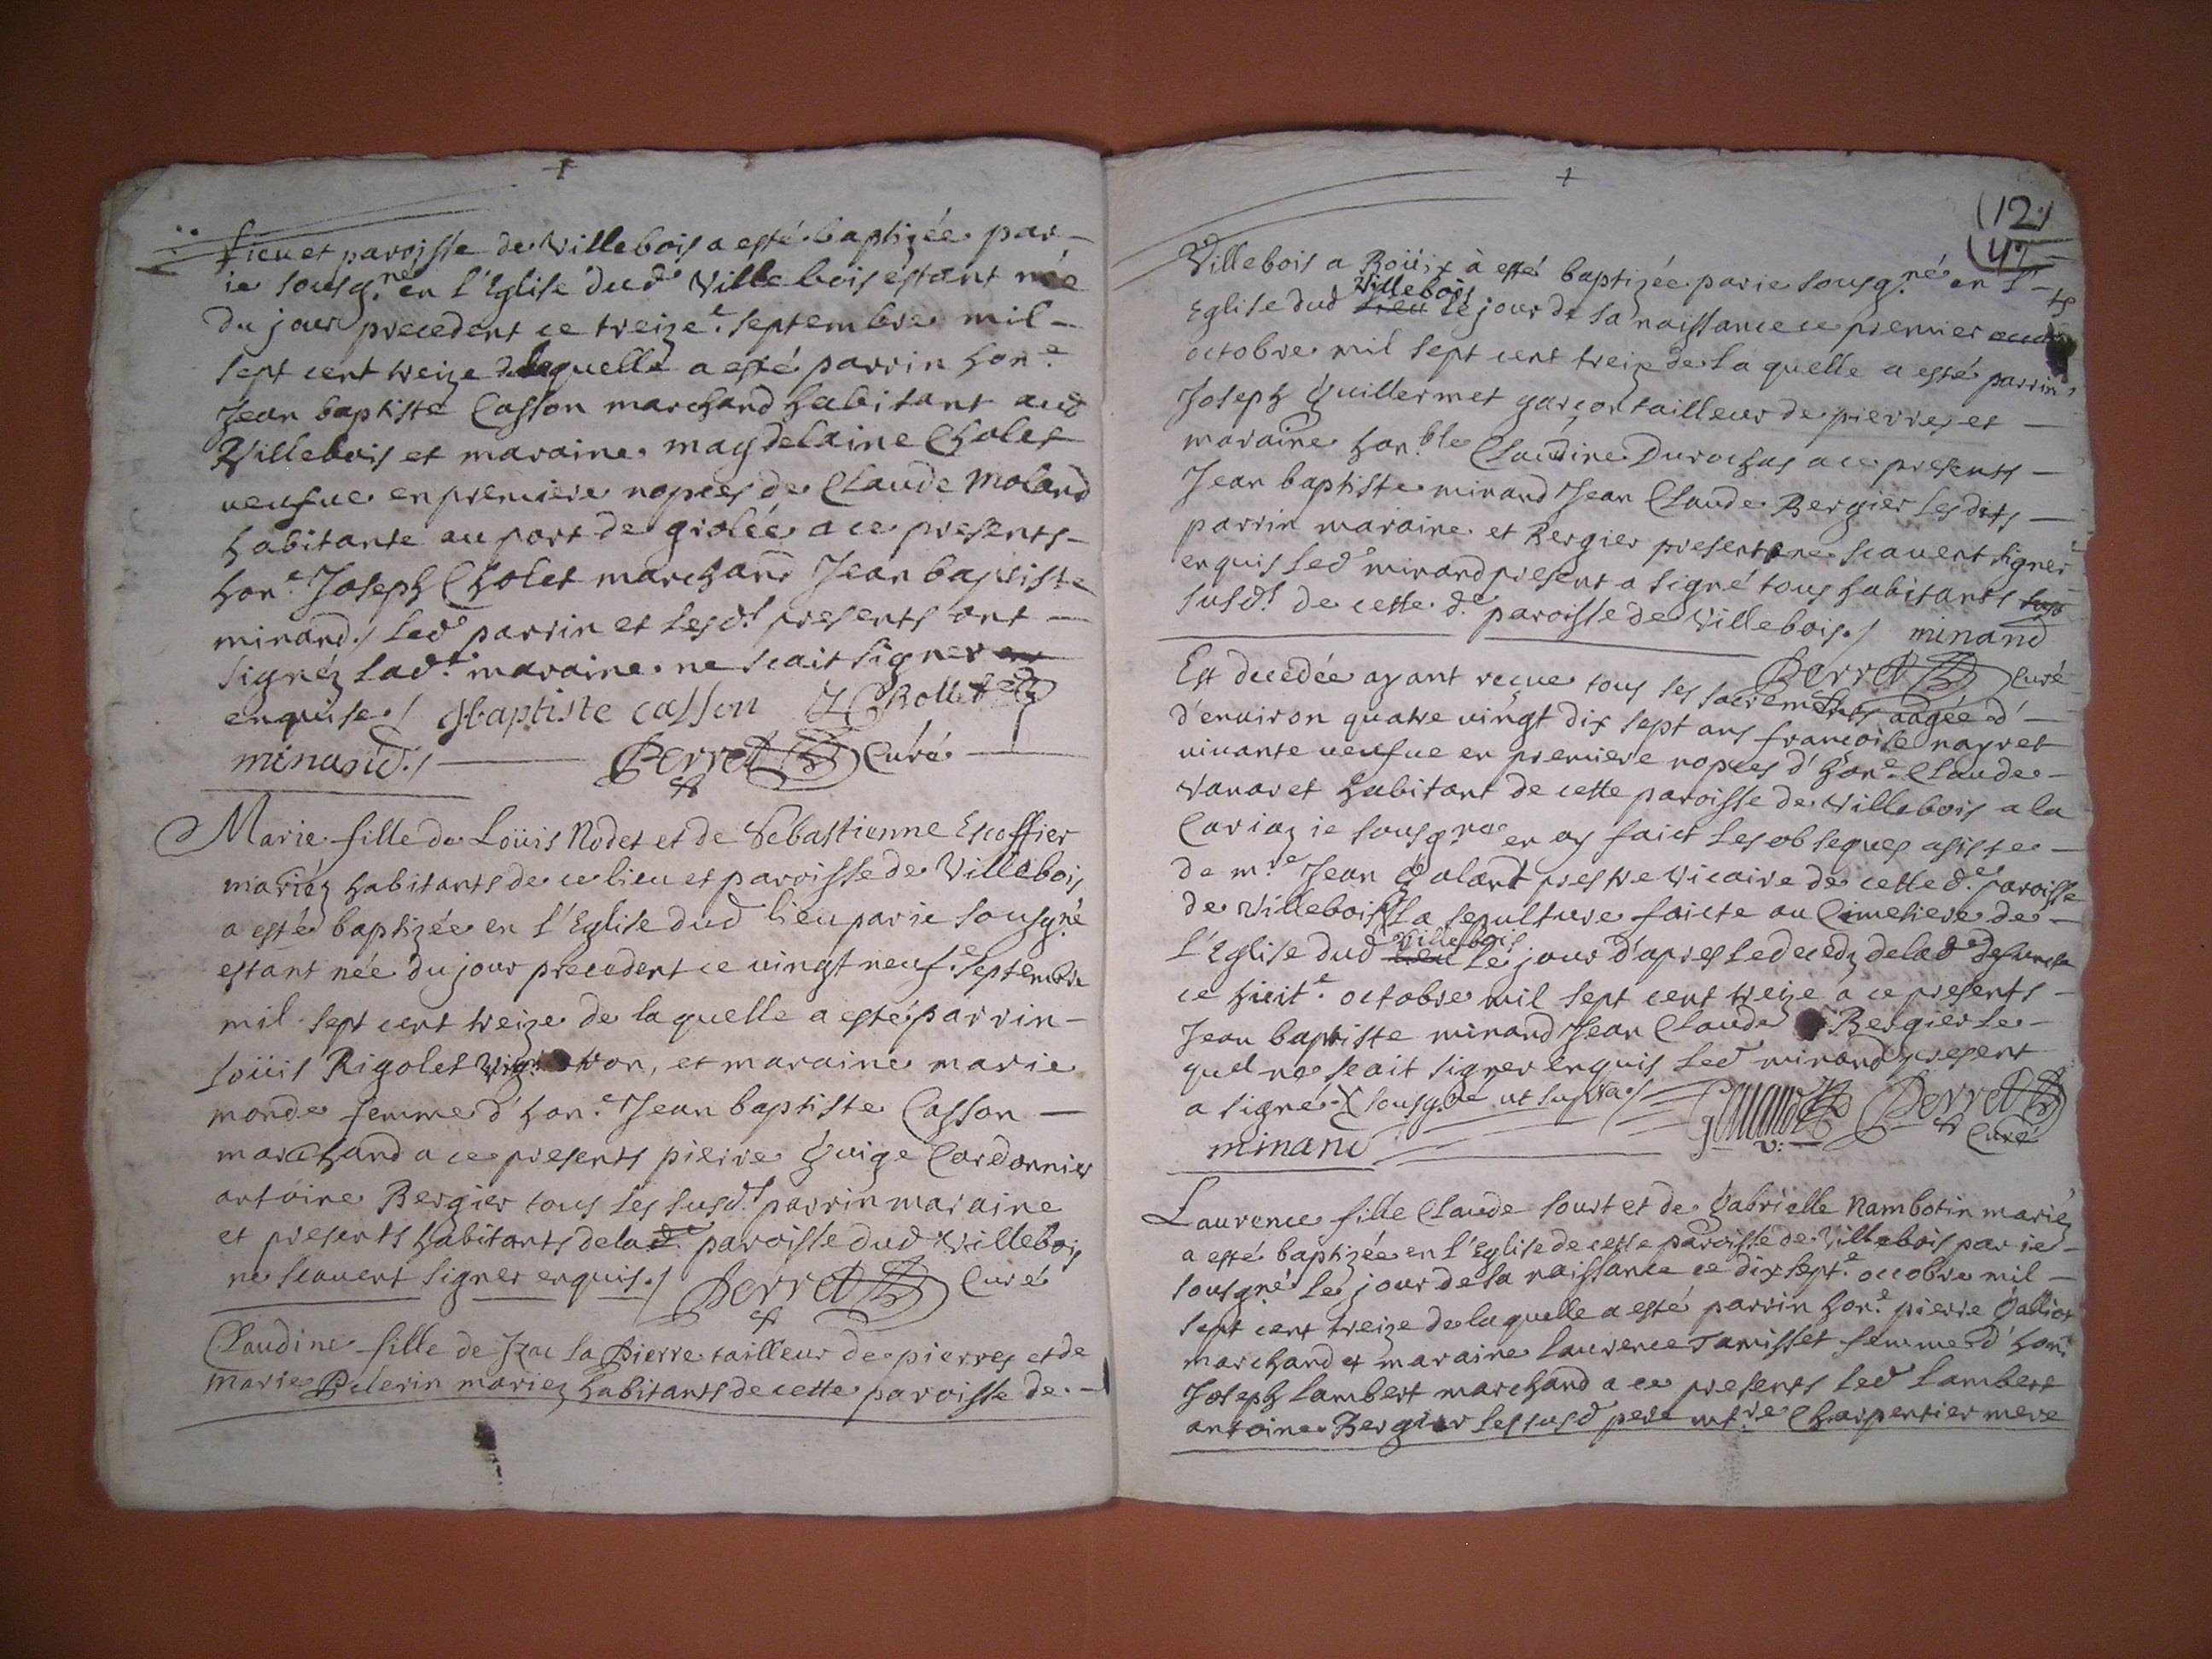 lieu et paroisse de Villebois a esté baptizée par -
ie sousg.né en l'Eglise dud.^t Villebois éstant née
du jour precedent ce treize.^e septembre mil -
sept cent treize de laquelle a esté parrin hon.^e
Jean baptiste Casson marchand habitant aud
Villebois et maraine. magdelaine Cholet
ueufue en premiere nopces de Claude Moland
habitante au port de grolée a ce presents -
hon.^e Joseph Cholet marchand Jean baptiste
minand./ led^t parrin et lesd.^s presents ont -
signéz lad.^e maraine. ne scait signer
enquise./ JBaptiste casson J Chollet
minand./ Perret Curé
Marie fille de Loüis Nodet et de Sebastienne Escoffier
mariéz habitants de ce lieu et paroisse de Villebois
a esté baptizée en l'Eglise dud lieu par ie sousg.né
estant née du jour precedent ce uingt neuf.^e septembre
mil sept cent treize de laquelle a esté parrin -
Loüis Rigolet et maraine marie
monde femme d'hon.^e Jean baptiste Casson -
marchand a ce presents pierre Guige Cordonnier
antoine Bergier tous les susd.^s parrin maraine
et presents habitants de lad.^e paroisse dud Villebois
ne scauent signer enquis./ Perret Curé
Claudine fille de Izac la Pierre tailleur de pierres et de
marie Pelerin mariez habitants de cette paroisse de. -
+
(12)
Villebois a Roüix à esté baptizée par ie sousg.né en l' -
Eglise dud Villebois le jour de sa naissance ce premier
octobre mil sept cent treize de la quelle a esté parrin
Joseph Guillermet garçon tailleur de pierres et -
maraine hon.ble Claudine Durochas a ce presents -
Jean baptiste minand Jean Claude Bergier lesdits -
parrin maraine et Bergier presents ne scauent signer
enquis led^t minand present a signé tous habitants
susd.^s de cette d.^e paroisse de Villebois./ minand
Perret Curé
Est decedée ayant recue tous ses sacrements aagée d' -
d'enuiron quatre uingt dix sept ans francoise nayret
uiuante ueufue en premiere nopces d'hon.^e Claude -
Vanaret habitant de cette paroisse de Villebois a la
Cariaz ie sousg.né en ay faict les obseques assisté -
de m.^re Jean Galand prestre Vicaire de cette d.^e paroisse
de Villebois la sepulture faicte au Cimetiere de -
l'Eglise dud Villebois le jour d'apres le decedz de lad^e defuncte
ce huit.^e octobre mil sept cent treize a ce presents -
Jean baptiste minand Jean Claude Bergier le -
quel ne scait signer enquis led minand present
a signé X sousg.né ut supra./ Perret
minand Curé
Laurence fille Claude sourt et de Gabrielle Nambotin mariéz
a esté baptizée en l'Eglise de cette paroisse de Villebois par ie -
sousg.né le jour de sa naissance ce dix sept.^e octobre mil -
sept cent treize de laquelle a esté parrin hon.^e pierre Galliot
marchand et maraine Laurence Tamisset femme d'hon.^e
Joseph Lambert marchand a ce presents led Lambert
antoine Bergier les susd pere m.^re Charpentier mere